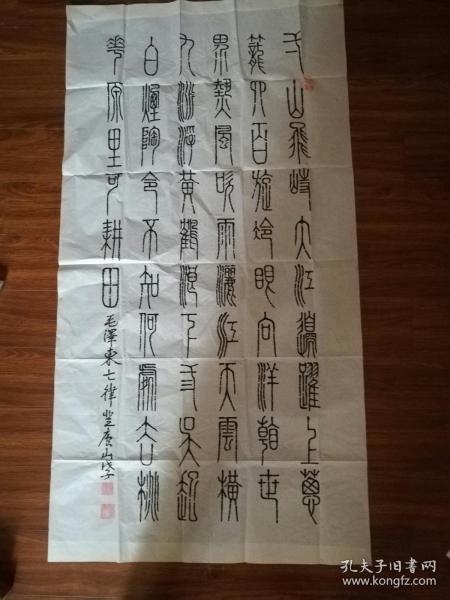 弌山飛峙大江邊躍上蔥
蘢四百旋冷眼向洋看世
界熱風吹雨灑江天雲橫
九派浮黃鶴浪下弎吳起
白煙陶令不知何處去桃
華原里可耕田
毛澤東七律登庐山戊子
孔夫子旧书网
www.kongfz.com